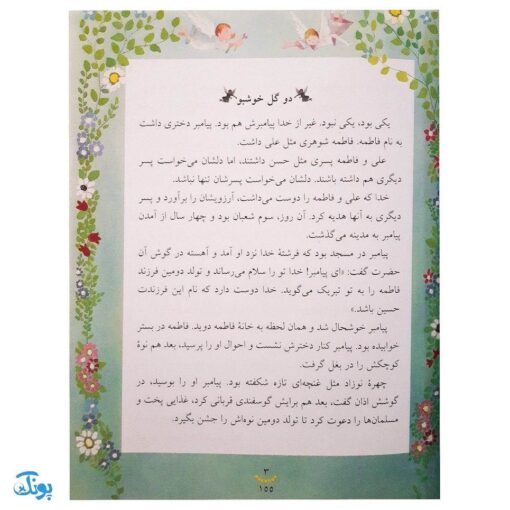 دو گل خوشبو
یکی بود، یکی نبود. غیر از خدا پیامبرش هم بود. پیامبر دختری داشت
به نام فاطمه. فاطمه شوهری مثل علی داشت.
علی و فاطمه پسری مثل حسن داشتند، اما دلشان می‌خواست پسر
دیگری هم داشته باشند. دلشان می‌خواست پسرشان تنها نباشد.
خدا که علی و فاطمه را دوست می‌داشت، آرزویشان را برآورد و پسر
دیگری به آنها هدیه کرد. آن روز، سوم شعبان بود و چهار سال از آمدن
پیامبر به مدینه می‌گذشت.
پیامبر در مسجد بود که فرشتهٔ خدا نزد او آمد و آهسته در گوش آن
حضرت گفت: «ای پیامبر! خدا تو را سلام می‌رساند و تولد دومین فرزند
فاطمه را به تو تبریک می‌گوید. خدا دوست دارد که نام این فرزندت
حسین باشد.»
پیامبر خوشحال شد و همان لحظه به خانهٔ فاطمه دوید. فاطمه در بستر
خوابیده بود. پیامبر کنار دخترش نشست و احوال او را پرسید، بعد هم نوهٔ
کوچکش را در بغل گرفت.
چهرهٔ نوزاد مثل غنچه‌ای تازه شکفته بود. پیامبر او را بوسید، در
گوشش اذان گفت، بعد هم برایش گوسفندی قربانی کرد، غذایی پخت و
مسلمان‌ها را دعوت کرد تا تولد دومین نوه‌اش را جشن بگیرد.
۳
۱۵۵
پونک